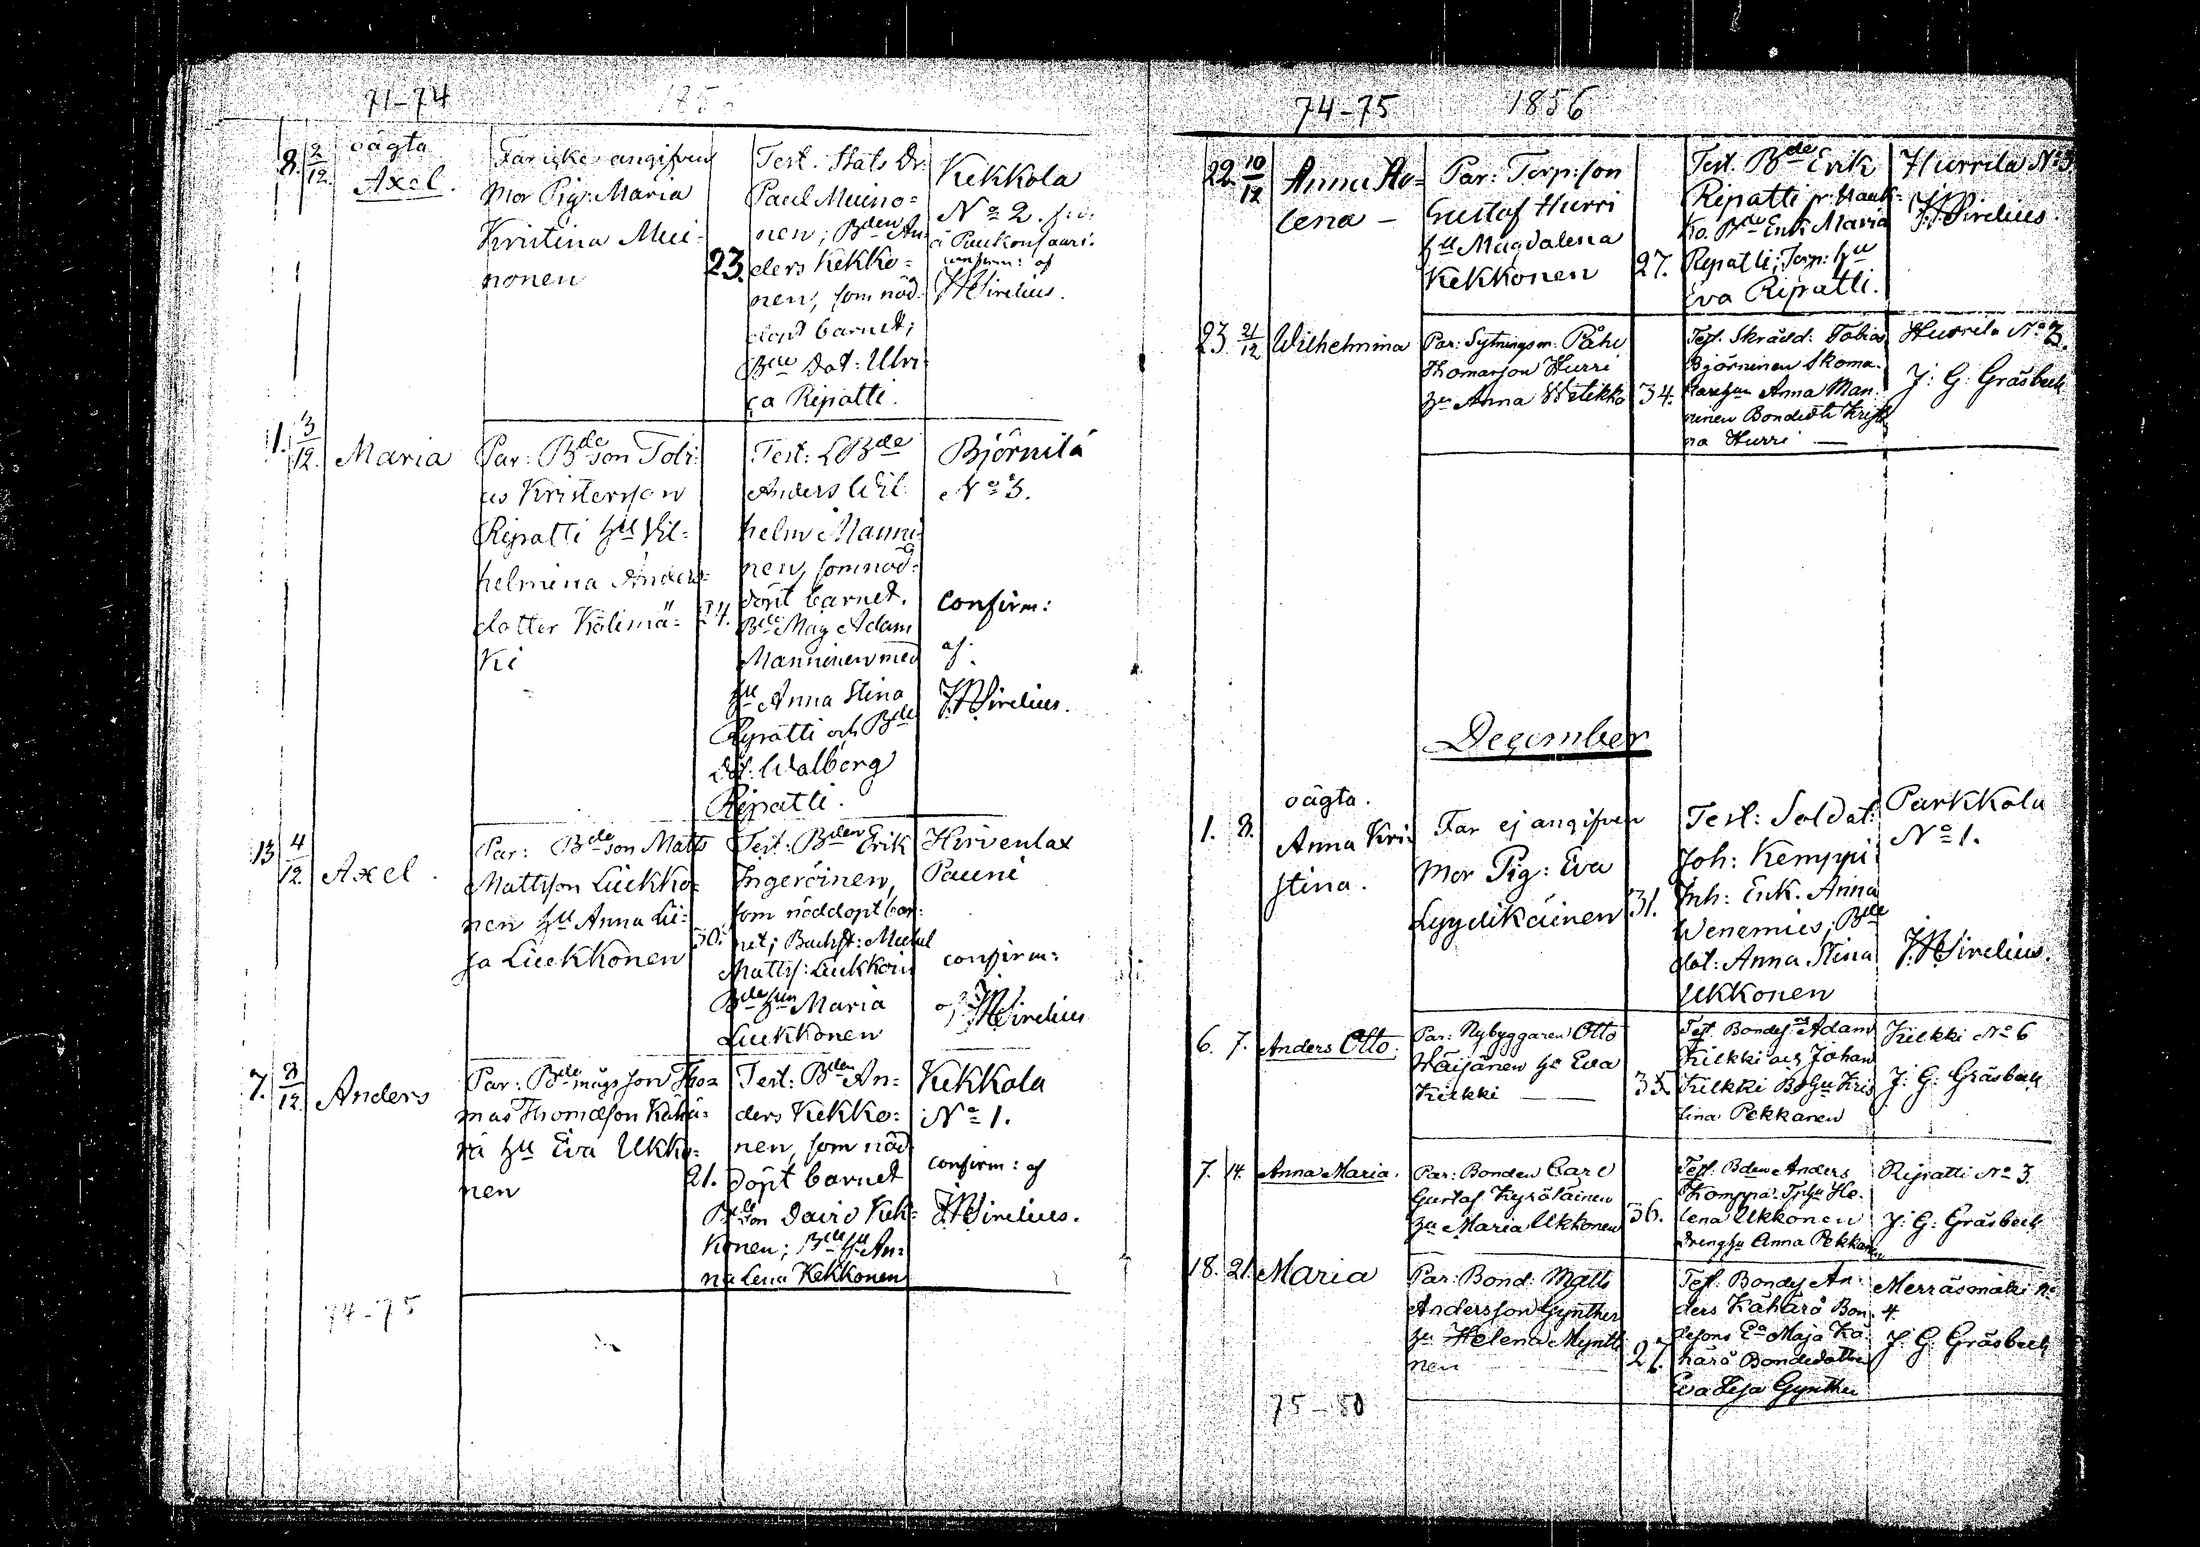 71-74
185
8. 2/12. oägta
Axel.
Far icke angifven
Mor Pig: Maria
Kristina Mui-
nonen
23.
Test. Stats Dr.
Paul Muino=
nen; Bden An
ders Kekko=
nen, som nöd
döpt barnet;
Bde Dot: Ulri
ca Ripatti.
Kekkola
No 2.
å Puukonsaari.
confirm: af
Sirelius.
1. 3/12. Maria
Par: Bdeson Tobi
as Kristersson
Ripatti hu Vil=
helmina Anders=
dotter Kolimä=
ki
24.
Test: Bde
Anders Wil
helm Manni
nen, som nöd=
döpt barnet.
Bde Mag Adam
Manninen med
hu Anna Stina
Ripatti och Bde
dot: Walborg
Ripatti.
Björnilä
No 3.
confirm:
af.
Sirelius.
13 4/12. Axel.
Par: Bdeson Matts
Mattsson Liukko=
nen hu Anna Li=
sa Liukkonen
30.
Test: Bden Erik
Ingeröinen,
som nöddöpt bar=
net; Backst: Michel
Matts: Liukkoin
Bdeson hu Maria
Liukkonen
Hirvenlax
Pauni
confirm:
af Sirelius
7. 8/12 Anders
Par: Bde mågs son Tho=
mas Thomasson Kähä=
rä hu Eva Ukko=
nen
21.
Test: Bden An=
ders Kekko=
nen, som nöd
döpt barnet
Bdeson David Kek=
konen; Bde hu An=
na Lena Kekkonen
Kekkola
No 1.
confirm: af
Sirelius.
74-75
74-75 1856
22. 10/12 Anna He=
lena -
Par: Torp: son
Gustaf Hurri
hu Magdalena
Kekkonen
27.
Test. Bde Erik
Ripatti
ko. Bde Enk Maria
Ripatti; Torp: hu
Eva Ripatti.
Hurrila No 3
Sirelius.
23. 21/12 Wilhelmina
Par: Sytningsm: Påhl
Thomasson Hurri
hu Anna Wetikko
34.
Test. Skrädd: Tobias
Björninen Skoma=
Anna Man=
ninen Bonded
na Hurri
Hurrila No 3.
J: G: Gråsbeck
December
1. 8. oägta.
Anna Kri=
stina.
Far ej angifven
Mor Pig: Eva
Lyydikäinen
31.
Test: Soldat:
Joh: Kemppi
Inh: Enk. Anna
Wenemies; Bde
dot: Anna Stina
Ukkonen
Parkkola
No 1.
Sirelius.
6. 7. Anders Otto
Par: Nybyggaren Otto
Häisänen hu Eva
Kilkki
35.
Test. Bondes Adam
Kilkki och Johan
Kilkki Bds hu Kris
tina Pekkanen
Kilkki No 6
J: G: Gråsbeck
7. 14. Anna Maria.
Par: Bonden Carl
Gustaf Kyröläinen
hu Maria Ukkonen
36.
Test. Bden Anders
Komppa Tp hu He=
lena Ukkonen
Dreng hu Anna Pekkanen
Ripatti No 3.
J: G: Gråsbeck
18. 21. Maria
Par: Bond: Matts
Andersson Gynther
hu Helena Myntti
nen
27.
Test. Bondes An=
ders Kähärä Bon
Maja Kä=
härä Bondedotter
Eva Lisa Gynther
Merräsmäki No
4.
J: G: Gråsbeck
75-80